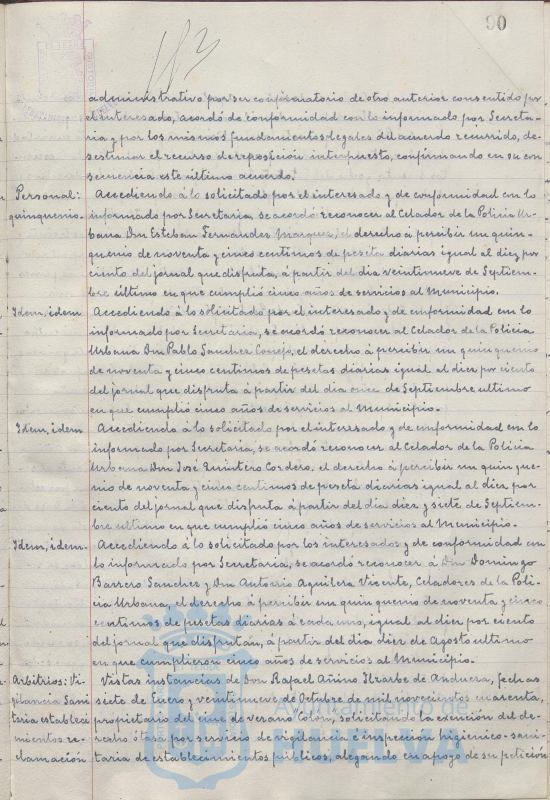 90
183
administrativo por ser confirmatorio de otro anterior consentido por
el interesado, acordó de conformidad con lo informado por Secreta-
ria y por los mismos fundamentos legales del acuerdo recurrido, de-
sestimar el recurso de reposición interpuesto, confirmando en su con
secuencia este último acuerdo.
Personal: Accediendo á lo solicitado por el interesado y de conformidad con lo
quinquenio informado por Secretaria, se acordó reconocer al Celador de la Policia Ur-
bana Don Esteban Fernandez Marquez, el derecho á percibir un quin-
quenio de noventa y cinco centimos de peseta diarias igual al diez por
ciento del jornal que disfruta, á partir del dia veintinueve de Septiem-
bre último en que cumplió cinco años de servicios al Municipio.
Idem, idem Accediendo á lo solicitado por el interesado y de conformidad con lo
informado por Secretaria, se acordó reconocer al Celador de la Policia
Urbana Don Pablo Sanchez Conejo, el derecho á percibir un quinquenio
de noventa y cinco centimos de pesetas diarias igual al diez por ciento
del jornal que disfruta á partir del dia once de Septiembre ultimo
en que cumplió cinco años de servicios al Municipio.
Idem, idem Accediendo á lo solicitado por el interesado y de conformidad con lo
informado por Secretaria, se acordó reconocer al Celador de la Policia
Urbana Don José Quintero Cordero, el derecho á percibir un quinque-
nio de noventa y cinco centimos de peseta diarias igual al diez por
ciento del jornal que disfruta á partir del dia diez y siete de Septiem-
bre ultimo en que cumplió cinco años de servicios al Municipio.
Idem, idem. Accediendo á lo solicitado por los interesados y de conformidad con
lo informado por Secretaria, se acordó reconocer á Don Domingo
Barrero Sanchez y Don Antonio Aguilera Vicente, Celadores de la Poli-
cia Urbana, el derecho á percibir un quinquenio de noventa y cinco
centimos de pesetas diarias á cada uno, igual al diez por ciento
del jornal que disfrutan, á partir del dia diez de Agosto ultimo
en que cumplieron cinco años de servicios al Municipio.
Arbitrios: Vi- Vistas instancias de Don Rafael Añino Ilzarbe de Anduera, fechas
gilancia Sani siete de Enero y veintinueve de Octubre de mil novecientos cuarenta,
taria establecí propietario del cine de verano "Colón", solicitando la exención del de-
mientos re- recho ó tasa por servicio de vigilancia e inspeccion higienico-sani-
clamación taria de establecimientos públicos, alegando en apoyo de su petición
Ayuntamiento de
HUELVA